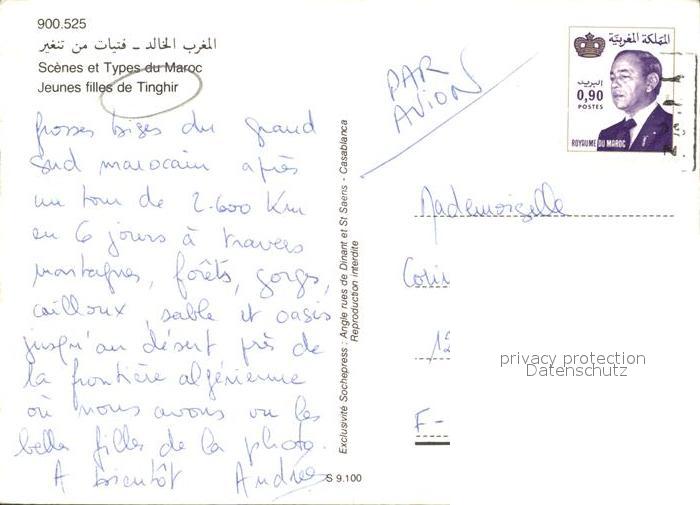 900.525
المغرب الخالد ـ فتيات من تنغير
Scènes et Types du Maroc
Jeunes filles de Tinghir
grosses bises du grand
sud marocain après
un tour de 2.600 Km
en 6 jours à travers
montagnes, forêts, gorges,
cailloux, sable et oasis
jusqu'au désert près de
la frontière algérienne
où nous avons vu les
belles filles de la photo.
A bientôt Andrée
S 9.100
Exclusivité Sochepress : Angle rues de Dinant et St Saens - Casablanca
Reproduction interdite
PAR
AVION
المملكة المغربية
البريد
0,90
POSTES
ROYAUME DU MAROC
Mademoiselle
Corin
12
F-
privacy protection
Datenschutz